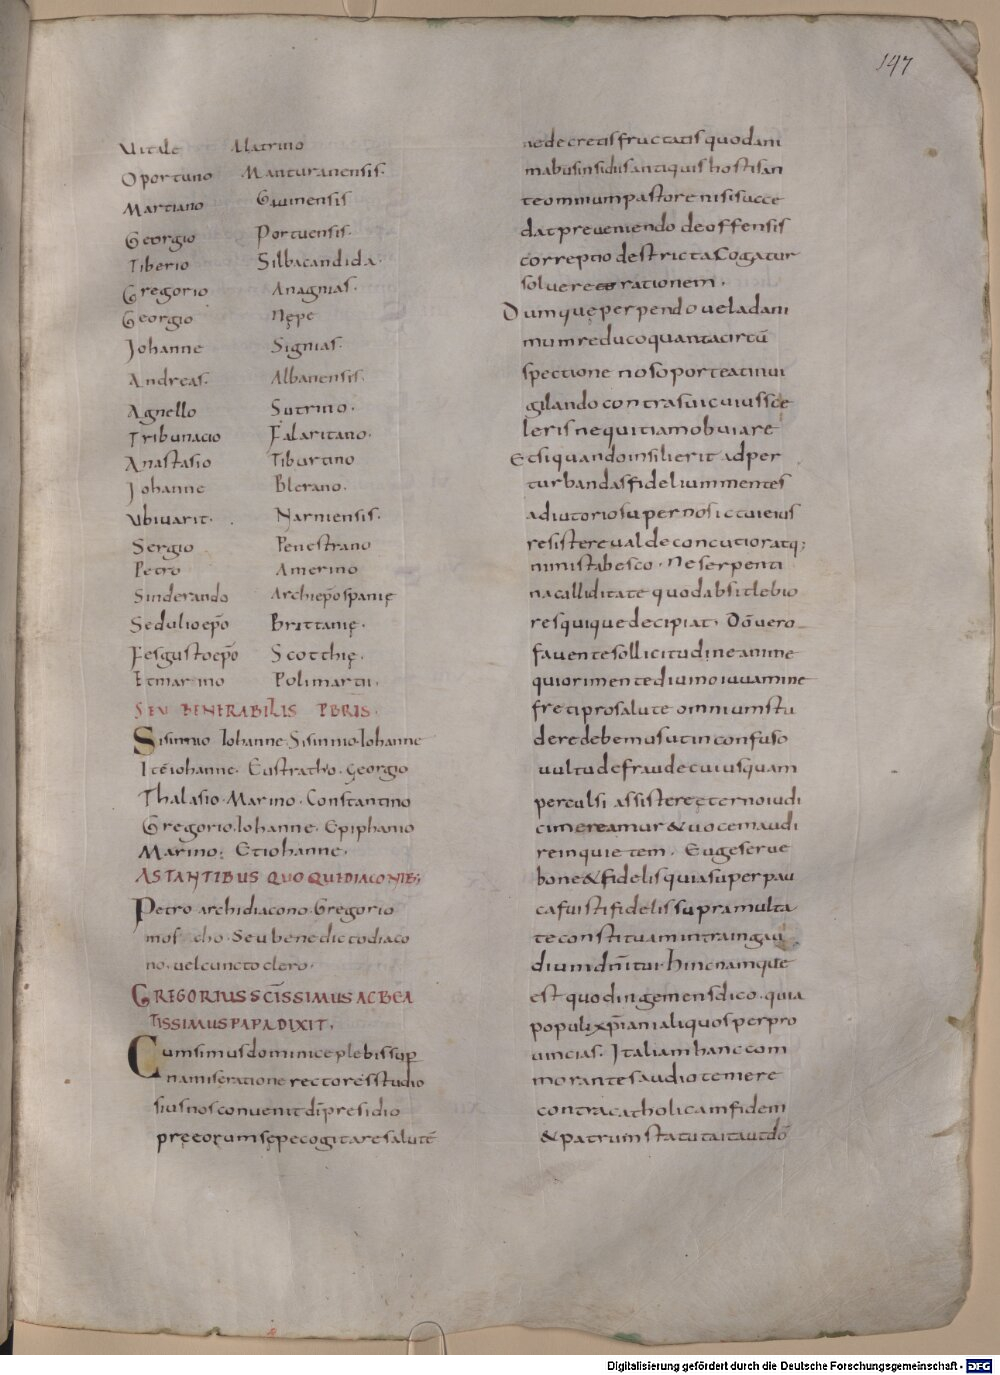 147
Vitale Alatrino
Oportuno Manturanensis.
Martiano Guinensis
Georgio Portuensis.
Tiberio Silbacandida.
Gregorio Anagnias.
Georgio Nępe
Johanne Signias.
Andreas. Albanensis.
Agnello Sutrino.
Tribunacio Falaritano.
Anastasio Tiburtino
Johanne Blerano.
Vbiuarit. Narniensis.
Sergio Penestrano
Petro Amerino
Sinderando Archiep̄o spanię
Sedulio ep̄o Brittanię.
Fesgusto ep̄o Scotthię.
Etmarino Polimartii.
SEV BENERABILIS PBRIS.
Sisinnio Iohanne. Sisinnio. Iohanne
Itē iohanne. Eustratho. Georgio
Thalasio. Marino. Constantino
Gregorio. Iohanne. Epiphanio
Marino. Et iohanne.
ASTANTIBUS QUOQUI DIACONIB;
Petro archidiacono. Gregorio
mos cho. Seu benedicto diaco
no. uel cuncto clero.
GREGORIUS SCISSIMUS AC BEA
TISSIMUS PAPA DIXIT.
Cum simus dominice plebis sup
na miseratione rectores studio
sius nos conuenit dī presidio
pręeorum sępe cogitare salutē
ne decretis fructatis quod ani
mabus insidiis antiquis hostis an
te omnium pastore nisi succe
dat preueniendo de offensis
correptio destricta Cogatur
soluere rationem.
Dumquę perpendo uel ad ani
mum reduco quanta cirtū
spectione nos oporteat inui
gilando contra sui cuius sce
leris nequitiam obuiare
Et si quando insilierit ad per
turbandas fidelium mentes
adiutorio supernos ictui eius
resistere ualde concutior atq;
nimis tabesco. Ne serpenti
na calliditate quod absit lebio
res quique decipiat. Dō uero
fauente sollicitudine anime
qui orimente diuino iuuamine
freti pro salute omnium stu
dere debemus ut inconfuso
uultu de fraude cuiusquam
perculsi assistere ęterno iudi
ci mereamur & uocem audi
re inquietem. Euge serue
bone & fidelis quia super pau
ca fuisti fidelis supra multa
te constituam intra in gau
dium dn̄i tui. hinc namque
est quod ingemens dico. quia
populi xp̄iani aliquos per pro
uincias. Italiam hanc com
morantes audio temere
contra catholicam fidem
& patrum statuta ita ut dō
Digitalisierung gefördert durch die Deutsche Forschungsgemeinschaft - DFG